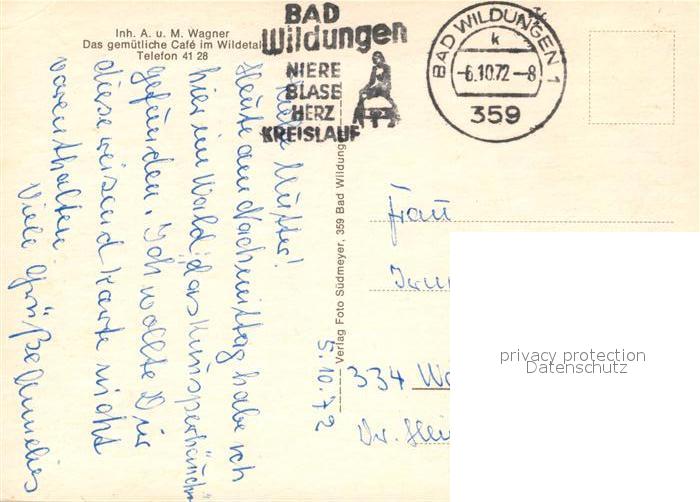 Inh. A. u. M. Wagner
Das gemütliche Café im Wildetal
Telefon 41 28
BAD
Wildungen
NIERE
BLASE
HERZ
KREISLAUF
BAD WILDUNGEN 1
k
-6.10.72-8
359
Liebe Mutter!
Heute am Nachmittag habe ich
hier im Wald "das Knusperhäuschen"
gefunden. Ich wollte Dir
diese reizend Karte nicht
vorenthalten.
Viele Grüße Annelies
5.10.72
Verlag Foto Südmeyer, 359 Bad Wildung
Frau
334 Wo
Dr. Hei
privacy protection
Datenschutz